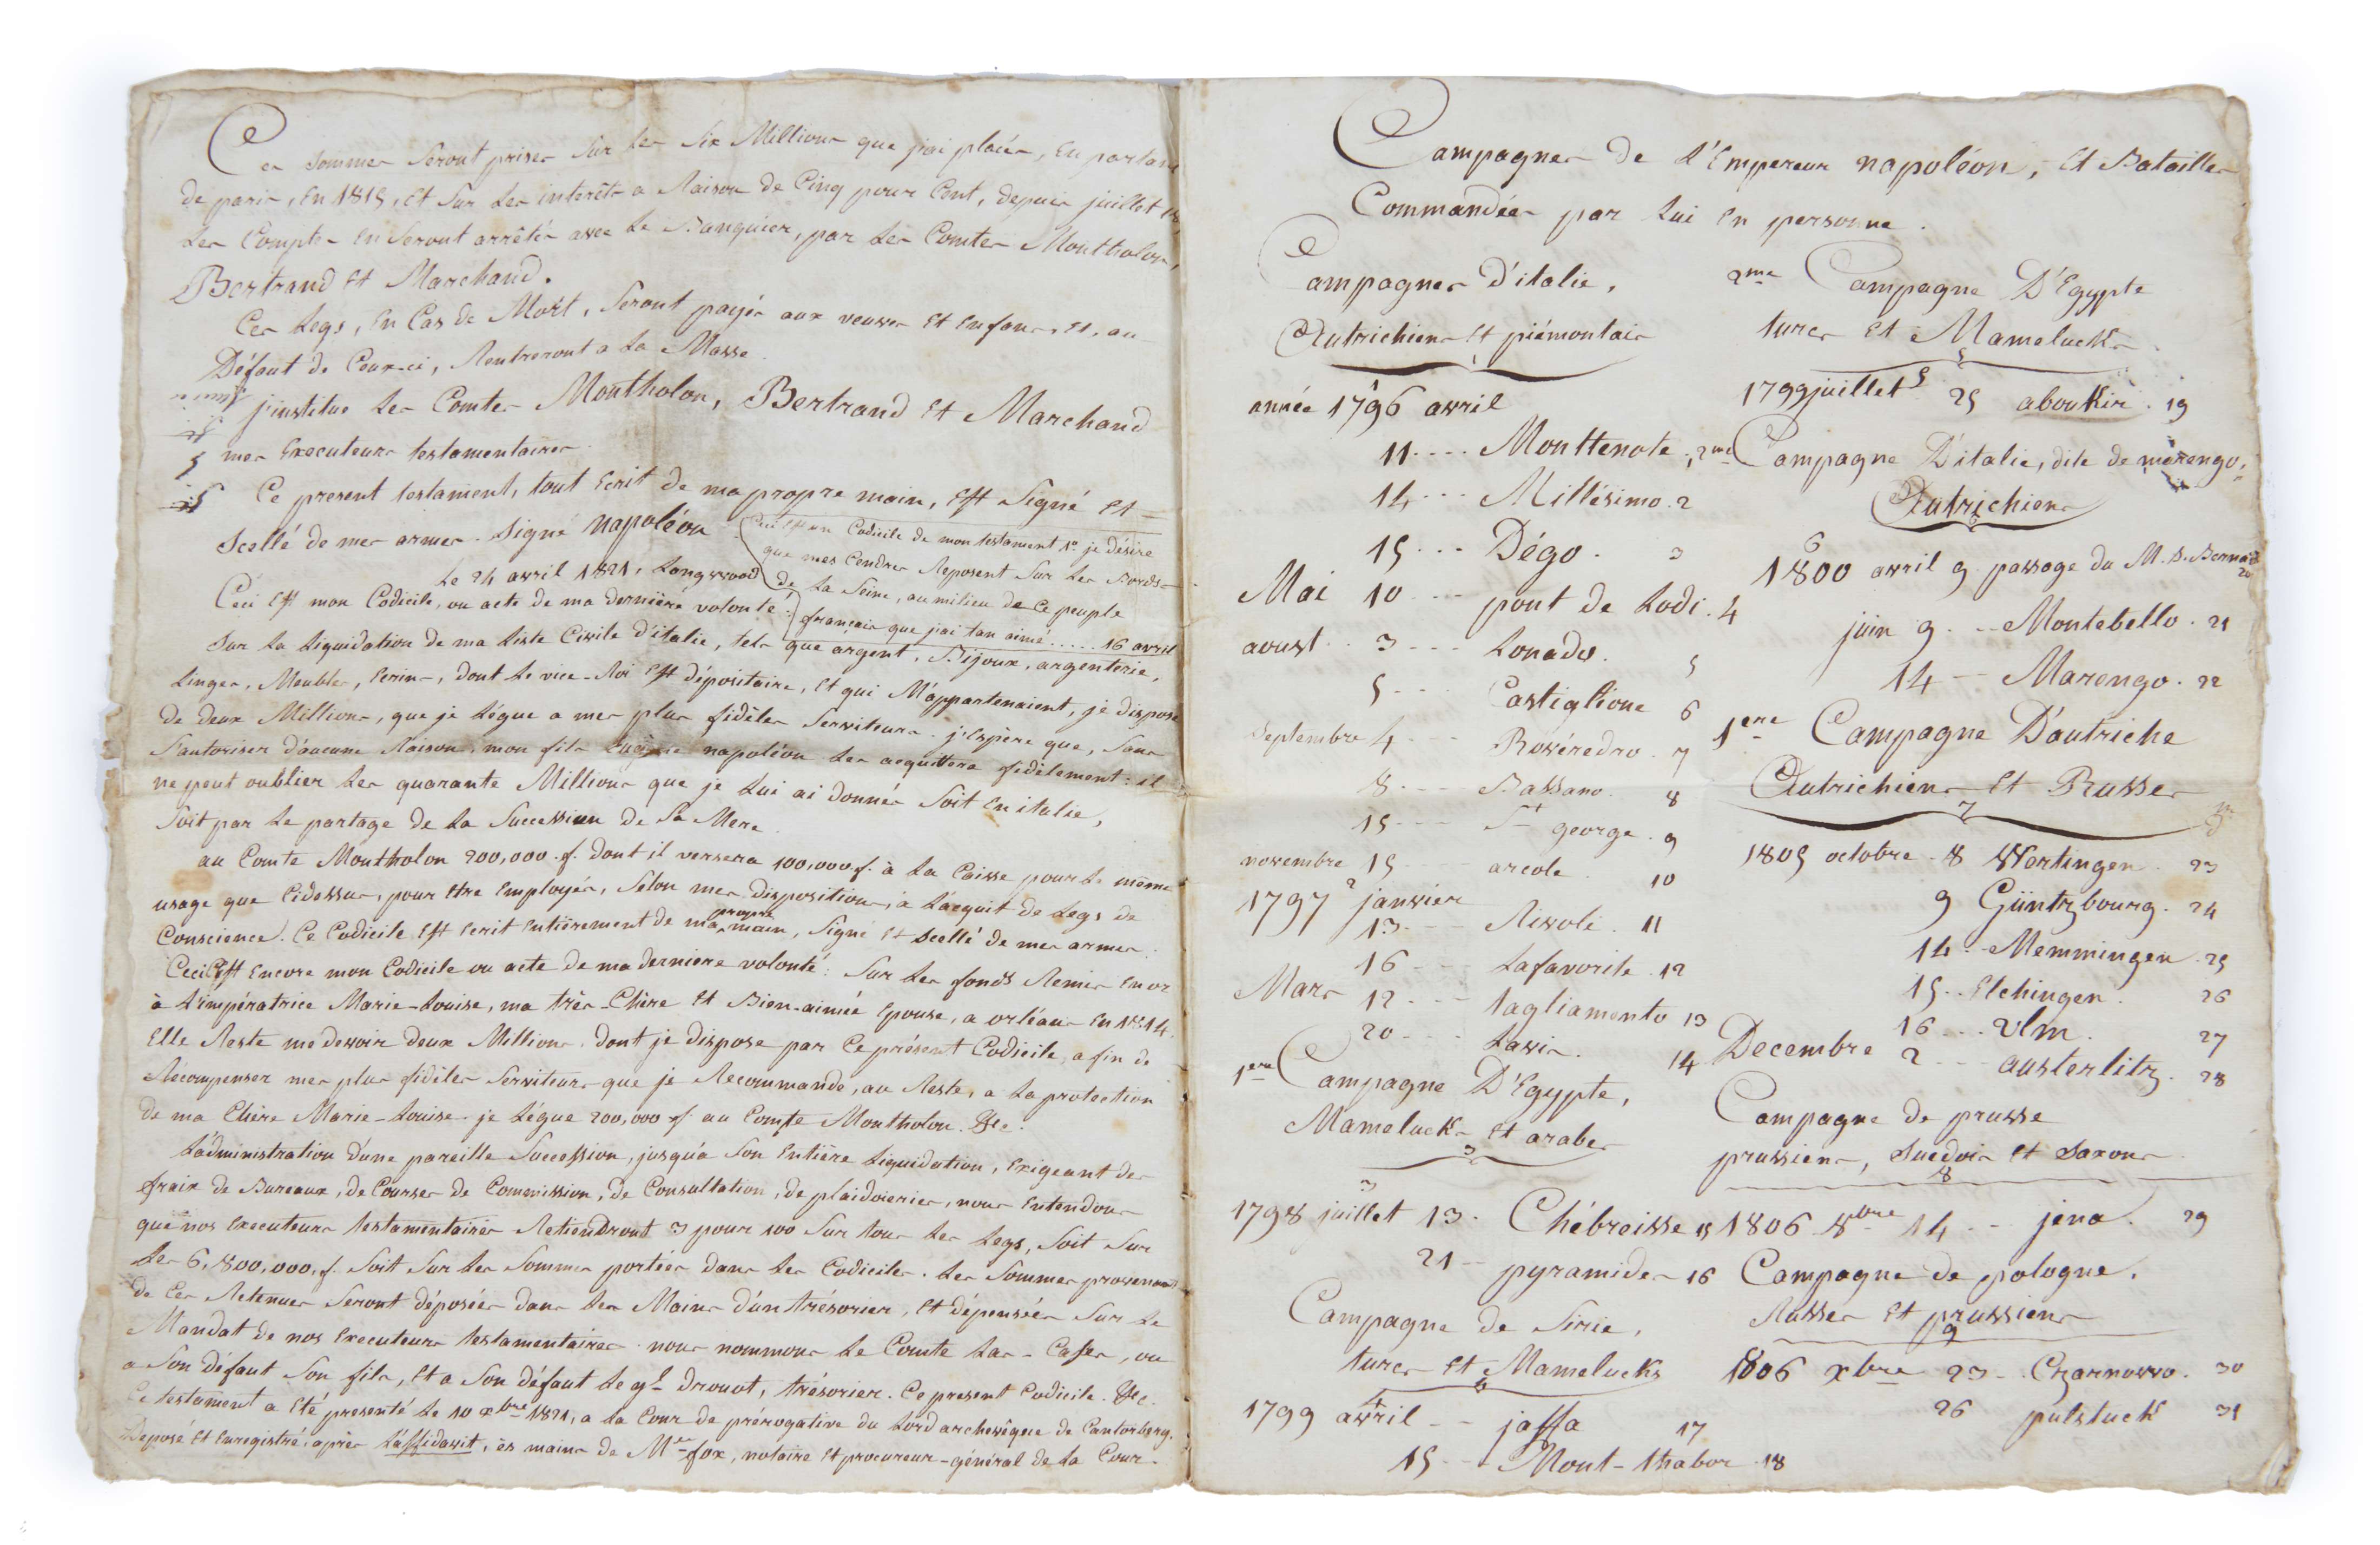 Ces sommes seront prises sur les six Millions que j'ai placés, en partant
de paris, en 1815, et sur les interêts a Raison de Cinq pour Cent, depuis juillet
Les Comptes en seront arrêtés avec le Banquier, par les Comtes Montholon,
Bertrand et Marchand.
Ces Legs, en Cas de Mort, seront payés aux veuves et enfans, et, au
Défaut de Ceux-ci, Rentreront a la Masse.
j'institue les Comtes Montholon, Bertrand et Marchand
mes Executeurs testamentaires.
Ce present testament, tout Ecrit de ma propre main, Est Signé et
Scellé de mes armes. Signé napoléon.
Ceci Est un Codicile de mon testament 1º je désire
que mes Cendres Reposent sur les Bords
de la Seine, au milieu de Ce peuple
français que j'ai tan aimé ..... 16 avril
Le 24 avril 1821, Longwood
Ceci Est mon Codicile, ou acte de ma dernière volonté:
Sur la liquidation de ma liste Civile d'italie, tels que argent, Bijoux, argenterie,
linges, Meubles, Ecrins, dont le vice-Roi Est dépositaire, et qui M'appartenaient, je dispose
de deux Millions, que je lègue a mes plus fidèles Serviteurs. j'Espère que, sans
s'autoriser d'aucune Raison, mon fils Eugene napoléon les acquittera fidèlement: il
ne peut oublier les quarante Millions que je lui ai donnés soit en italie,
soit par le partage de la Succession de sa Mere.
au Comte Montholon 200,000.f. dont il versera 100,000.f. à la Caisse pour le même
usage que Cidessus, pour être Employés, selon mes dispositions, à l'acquit de Legs de
Conscience. Ce Codicile Est Ecrit Entièrement de ma propre main, signé et scellé de mes armes.
Ceci Est Encore mon Codicile ou acte de ma derniere volonté: Sur les fonds Remis en or
à L'impératrice Marie-Louise, ma très-Chère et Bien-aimée Epouse, a orléans en 1814
Elle Reste me devoir deux Millions, dont je dispose par Ce présent Codicile, afin de
Récompenser mes plus fidèles Serviteurs que je Recommande, au Reste, a la protection
de ma Chère Marie-Louise. je lègue 200,000 f. au Comte Montholon. &c.
L'administration d'une pareille Succession, jusqu'à Son Entière Liquidation, Exigeant des
fraix de Bureaux, de Courses de Commission, de Consultation, de plaidoieries, nous Entendons
que nos Executeurs testamentaires Retiendront 3 pour 100 sur tous les Legs, soit sur
les 6,800,000.f. soit sur les sommes portées dans les Codiciles. Les Sommes provenant
de Ces Retenues seront déposées dans les Mains d'un trésorier, et dépensées sur le
Mandat de nos Executeurs testamentaires. nous nommons le Comte Las-Cases, ou
a Son défaut Son fils, Et a Son défaut le gl. drouot, trésorier. Ce present Codicile. &c.
Ce testament a Eté presenté le 10 xbre 1821, a la Cour de prérogative du Lord archevêque de Cantorbery.
Deposé et Enregistré, après L'affidavit, ès mains de Mr. fox, notaire et procureur-général de la Cour.
Campagnes de L'Empereur napoléon, et Batailles
Commandées par Lui En personne.
Campagnes D'italie,
Autrichiens et piémontais
1
année 1796 avril
11.... Monttenote 1
14 ... Millésimo. 2
15 ... Dégo. 3
Mai 10 ... pont de Lodi. 4
aoust .. 3 ... Lonado. 5
5 ... Castiglione 6
Septembre 4 ... Rovéredro. 7
8 ... Bassano. 8
15 ... St george. 9
novembre 15 ... arcole. 10
2
1797 janvier
13 ... Rivoli. 11
16 ... Lafavorite. 12
Mars 12 ... tagliamento 13
20 ... Lavis. 14
1ere Campagne D'Egypte,
Mamelucks et arabes
3
3
1798 juillet 13. Chébreisse 15
21 -- pyramides 16
Campagne de Sirie,
turcs et Mamelucks
4
4
1799 avril -- jaffa 17
15 -- Mont-thabor 18
2me Campagne D'Egypte
turcs et Mamelucks
5
1799 juillet 5 25 aboukir. 19
2me Campagne D'italie, dite de marengo,
Autrichiens
6
6
1800 avril 9 passage du M. S. Bernard 20
juin 9. -- Montebello. 21
14 -- Marengo. 22
1ere Campagne D'autriche
Autrichiens et Russes
7
1805 octobre. 8 Wertingen. 23
9 Güntzbourg. 24
14 -- Memmingen. 25
15 .. Elchingen. 26
16 ... Ulm. 27
Decembre 2 ... austerlitz. 28
Campagne de prusse
prussiens, suedois et saxons
8
1806 8bre 14 -- jena. 29
Campagne de pologne.
Russes et prussiens
9
1806 xbre 23 -- Czarnowo. 30
26 pulstuck 31